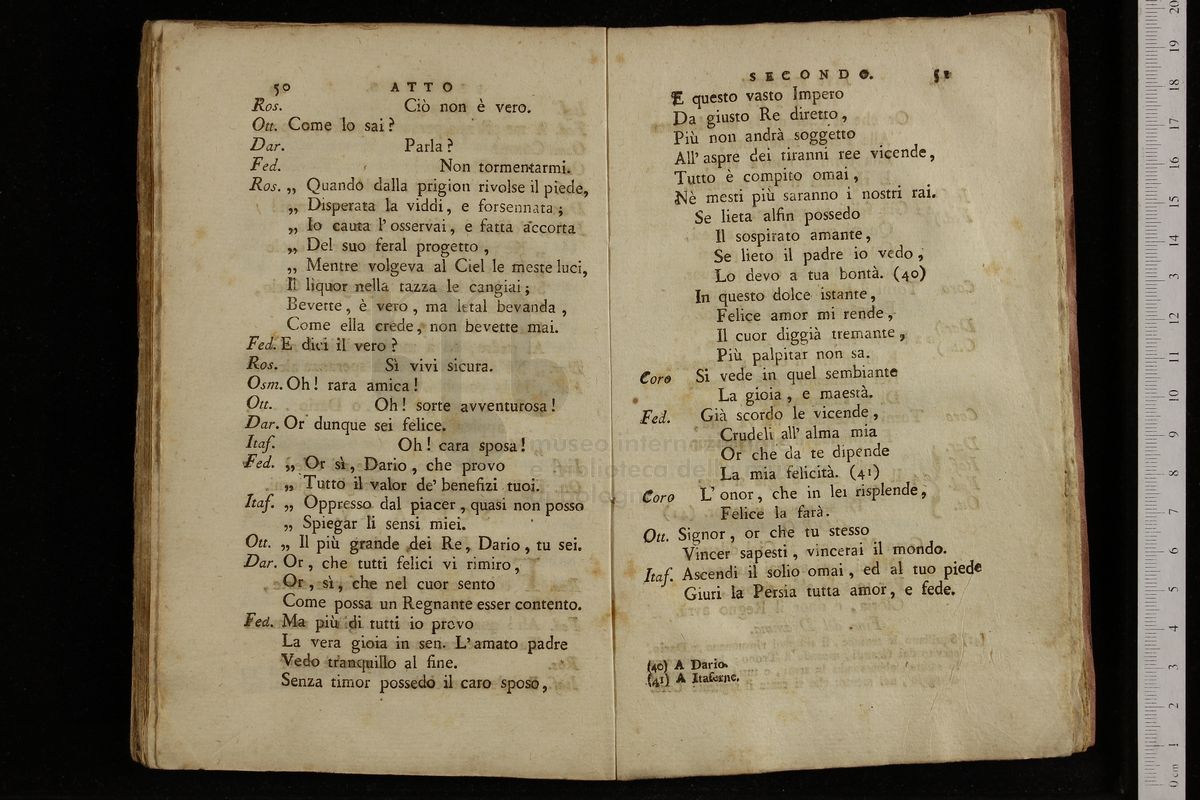 50 ATTO
Ros. Ciò non è vero.
Ott. Come lo sai?
Dar. Parla?
Fed. Non tormentarmi.
Ros. „ Quando dalla prigion rivolse il piede,
„ Disperata la viddi, e forsennata;
„ Io cauta l'osservai, e fatta accorta
„ Del suo feral progetto,
„ Mentre volgeva al Ciel le meste luci,
Il liquor nella tazza le cangiai;
Bevette, è vero, ma letal bevanda,
Come ella crede, non bevette mai.
Fed. E dici il vero?
Ros. Sì vivi sicura.
Osm. Oh! rara amica!
Ott. Oh! sorte avventurosa!
Dar. Or dunque sei felice.
Itaf. Oh! cara sposa!
Fed. „ Or sì, Dario, che provo
„ Tutto il valor de' benefizi tuoi.
Itaf. „ Oppresso dal piacer, quasi non posso
„ Spiegar li sensi miei.
Ott. „ Il più grande dei Re, Dario, tu sei.
Dar. Or, che tutti felici vi rimiro,
Or, sì, che nel cuor sento
Come possa un Regnante esser contento.
Fed. Ma più di tutti io provo
La vera gioia in sen. L'amato padre
Vedo tranquillo al fine.
Senza timor possedo il caro sposo,
SECONDO. 51
E questo vasto Impero
Da giusto Re diretto,
Più non andrà soggetto
All'aspre dei tiranni ree vicende,
Tutto è compito omai,
Nè mesti più saranno i nostri rai.
Se lieta alfin possedo
Il sospirato amante,
Se lieto il padre io vedo,
Lo devo a tua bontà. (40)
In questo dolce istante,
Felice amor mi rende,
Il cuor diggià tremante,
Più palpitar non sa.
Coro Si vede in quel sembiante
La gioia, e maestà.
Fed. Già scordo le vicende,
Crudeli all'alma mia
Or che da te dipende
La mia felicità. (41)
Coro L'onor, che in lei risplende,
Felice la farà.
Ott. Signor, or che tu stesso
Vincer sapesti, vincerai il mondo.
Itaf. Ascendi il solio omai, ed al tuo piede
Giuri la Persia tutta amor, e fede.
(40) A Dario.
(41) A Itaferne.
museo internazionale
e biblioteca della
di bologna